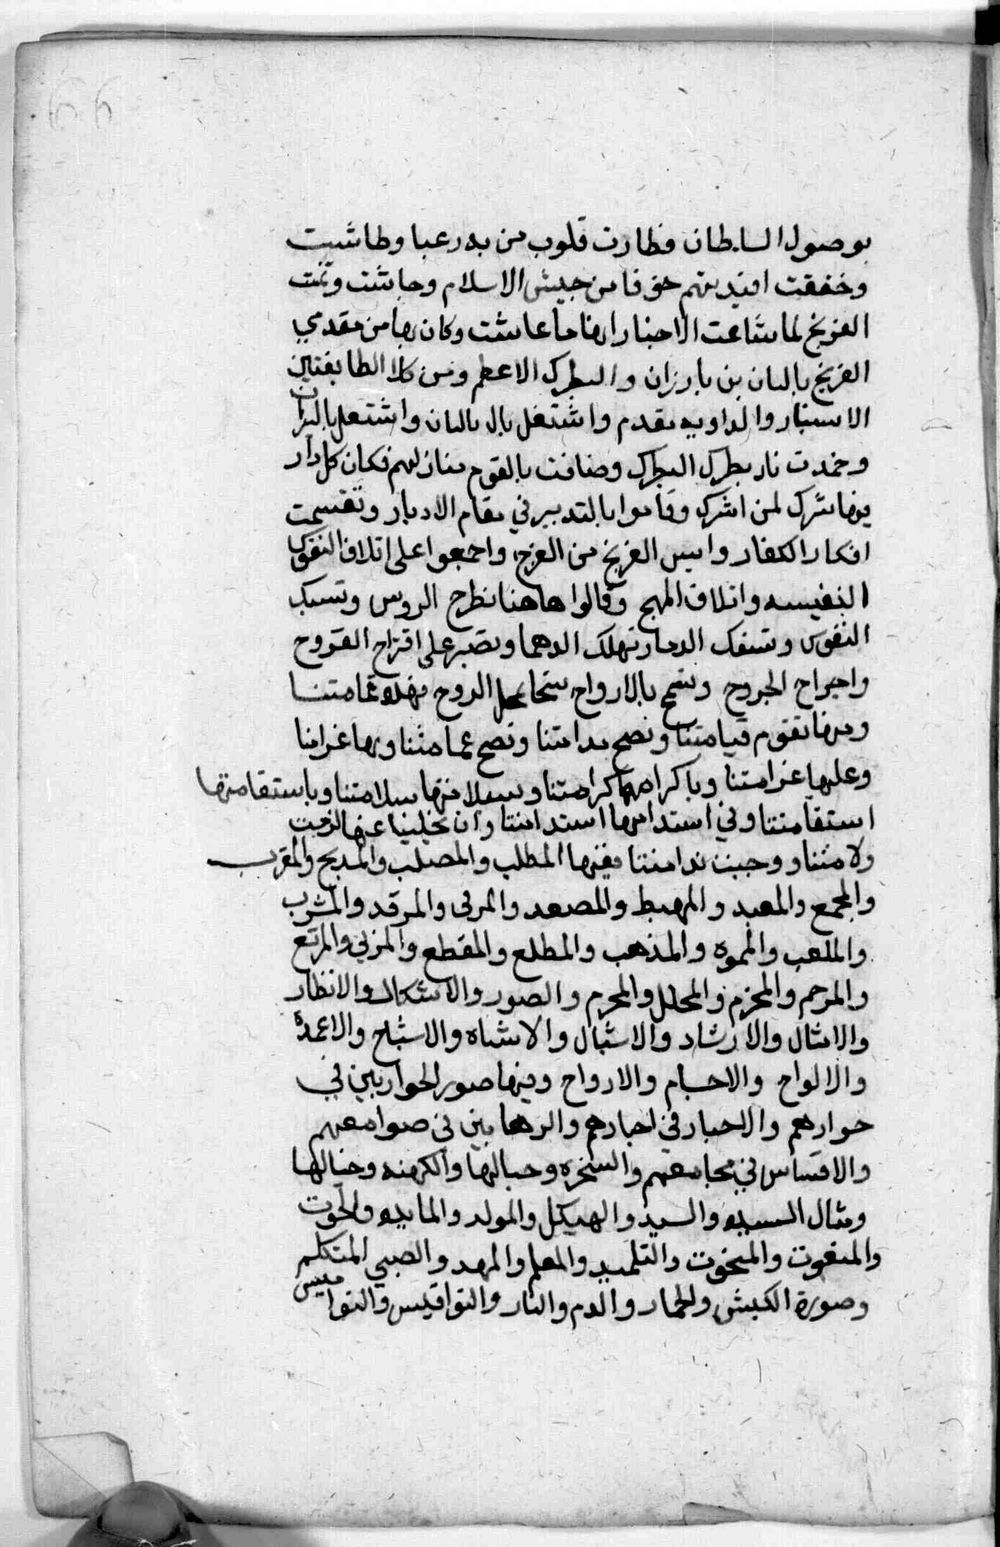 بوصول السلطان فطارت قلوب من بها رعبا وطاشت
وخفقت افيدتهم خوفا من جيش الاسلام وجاشت وتمنت
الفرنج لما شاعت الاخبار انها ما عاشت وكان بها من مقدمي
الفرنج باليان بن بارزان والبطرك الاعظم ومن كلا الطايفتين
الاستبار والداويه مقدم واشتغل بال باليان واشتعل بالنيران
وخمدت نار بطرك البطرك وضاقت بالقوم منازلهم فكان كل دار
فيها شرك لمن اشرك وقاموا بالتدبير في مقام الادبار وتقسمت
افكار الكفار وايس الفرنج من الفرج واجمعوا على اتلاف النفوس
النفيسه واتلاف المهج وقالوا هاهنا نطرح الروس وتسبك
النفوس وتسفك الدما وتهلك الدهما ونصبر على اقتراح القروح
واجراح الجروح ونسمح بالارواح شحا بمحل الروح فهذه قمامتنا
ومنها تقوم قيامتنا وتصح ندامتنا وتصح غمامتنا وبها غرامنا
وعليها غرامتنا وباكرامها كرامتنا وبسلامتها سلامتنا وباستقامتها
استقامتنا وفي استدامتها استدامتنا وان تخلينا عنها لزمت
ولامتنا ووجبت ندامتنا ففيها المطلب والمصلب والمذبح والمقرب
والمجمع والمعبد والمهبط والمصعد والمرقى والمرقد والمشرب
والملعب والمموه والمذهب والمطلع والمقطع والمربى والمرتع
والمرخم والمخرم والمحلل والمحرم والصور والاشكال والانظار
والامثال والارشاد والاشبال والاشباه والاشباح والاعمدة
والالواح والاجسام والارواح وفيها صور الحواريين في
حوارهم والاحبار في اخبارهم والرهابين في صوامعهم
والاقساس في مجامعهم والسحره وحبالها والكهنه وخيالها
ومثال السيده والسيد والهيكل والمولد والمايده والحوت
والمنعوت والمنحوت والتلميد والمعلم والمهد والصبي المتكلم
وصورة الكبش والحمار والدم والنار والنواقيس والنواميس